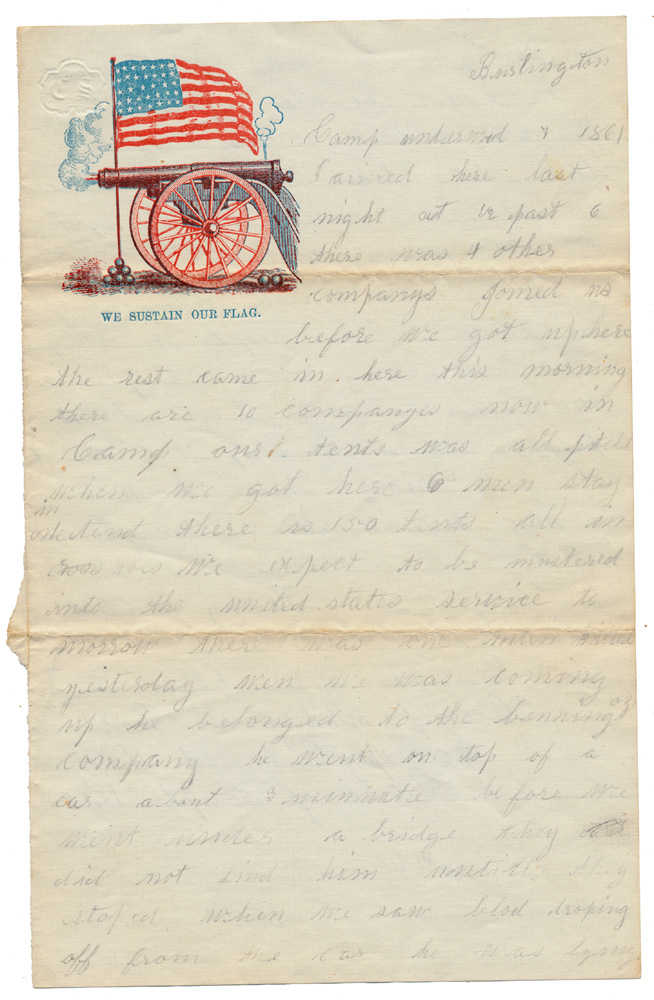 Burlington
Camp underwood 7 1861
I arrived here last
night at 1/2 past 6
there was 4 other
companys Joined us
before we got up here
WE SUSTAIN OUR FLAG.
the rest came in here this morning
there are 10 companyis now in
Camp our tents was all
when we got here 6 men stay
in
tend there is 150 tents all in
rows We expect to be mustered
into the united states service to
morrow there was one man
yesterday wen we was coming
up he belonged to the bennington
company he went on top of a
car about 3 minnute before we
went under a bridge they
did not find him untill they
stoped when we saw blod droping
off from the car he was lying